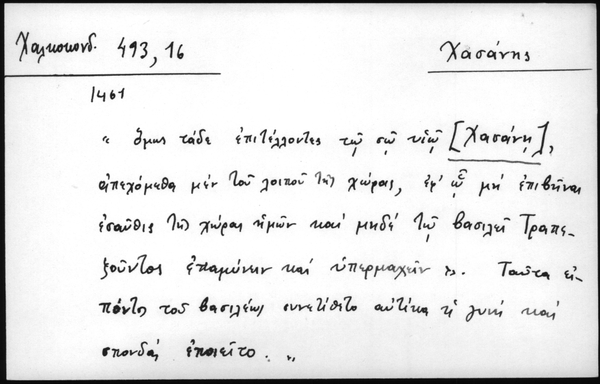 Χαλκοκονδ. 493, 16
Χασάνης
1461
" ὅμως τάδε ἐπιτέλλοντες τῷ σῷ υἱῷ [Χασάνῃ],
ἀπεχόμεθα μέν τοῦ λοιποῦ τῆς χώρας, ἐφ' ᾧ μή ἐπιβῆναι
ἐσαῦθις τῆς χώρας ἡμῶν καί μηδέ τῷ βασιλεῖ Τραπε-
ζοῦντος ἐπαμύνειν καί ὑπερμαχεῖν ». Ταῦτα εἰ-
πόντος τοῦ βασιλέως συνετίθετο αὐτίκα ἡ γυνή καί
σπονδάς ἐποιεῖτο. "